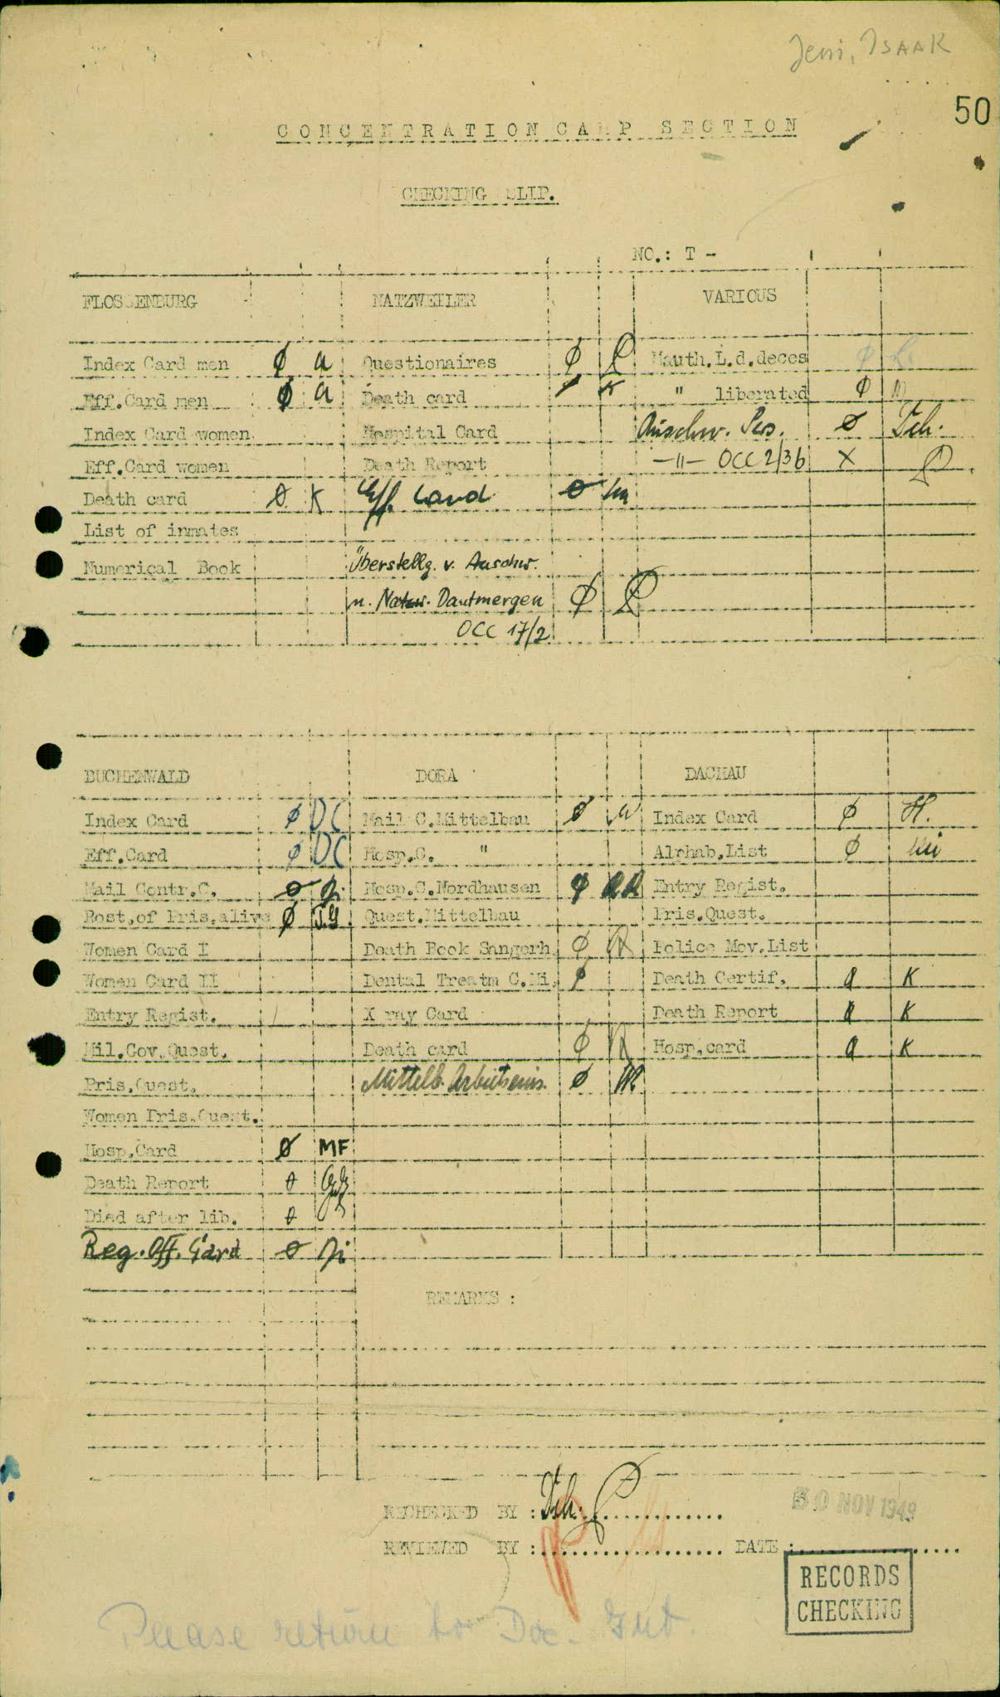 Jeni, ISAAK
50
CONCENTRATION CAMP SECTION
CHECKING SLIP.
NO.: T -
FLOSSENBURG NATZWEILER VARIOUS
Index Card men ϕ a Questionaires ϕ Mauth.L.d.deces ϕ
Eff.Card men ϕ a Death card K " liberated ϕ
Index Card women Hospital Card Auschw. Pers. ø Tch.
Eff.Card women Death Report -"- OCC 2/36 X
Death card ø K Eff. Card ø
List of inmates
Numerical Book Überstellg. v. Auschw.
n. Natzw. Dautmergen ϕ
OCC 17/2
BUCHENWALD DORA DACHAU
Index Card ϕ DC Mail C.Mittelbau ø W Index Card ϕ H.
Eff.Card ϕ DC Hosp.C. " Alphab.List ϕ
Mail Contr.C. ø Ji Hosp.C.Nordhausen ϕ Entry Regist.
Post.of Pris.alive ϕ J.G Quest.Mittelbau Pris.Quest.
Women Card I Death Book Sangerh. ϕ Police Mov.List
Women Card II Dental Treatm C.Mi. ϕ Death Certif. K
Entry Regist. X ray Card Death Report K
Mil.Gov.Quest. Death card ϕ Hosp.card K
Pris.Quest. Mittelb. Arbeitseins. ø
Women Pris.Quest.
Hosp.Card ø MF
Death Report ø
Died after lib. ø
Reg. Off. Card ø Ji
REMARKS :
RECHECKED BY : Tch.
30 NOV 1949
REVIEWED BY : DATE :
RECORDS
CHECKING
Please return to Doc. Int.